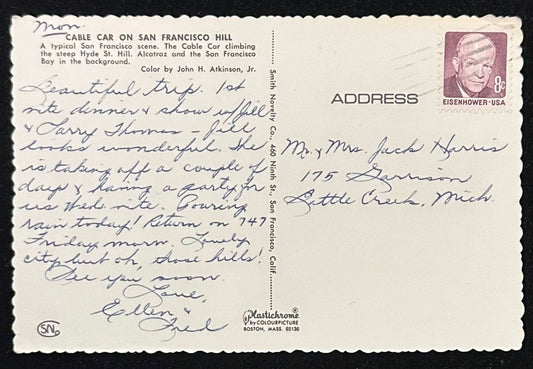 Mon.
CABLE CAR ON SAN FRANCISCO HILL
A typical San Francisco scene. The Cable Car climbing
the steep Hyde St. Hill. Alcatraz and the San Francisco
Bay in the background.
Color by John H. Atkinson, Jr.
Beautiful trip. 1st
nite dinner & show w/Jill
& Larry Thomas – Jill
looks wonderful. She
is taking off a couple of
days & having a party for
us Weds nite. Pouring
rain today! Return on 747
Friday morn. Lovely
city but oh, those hills!
See you soon.
Love,
Ellen &
Fred
SN
Smith Novelty Co., 460 Ninth St., San Francisco, Calif.
Plastichrome®
by COLOURPICTURE
BOSTON, MASS. 02130
ADDRESS
8c
EISENHOWER·USA
Mr. & Mrs. Jack Harris
175 Garrison
Battle Creek, Mich.